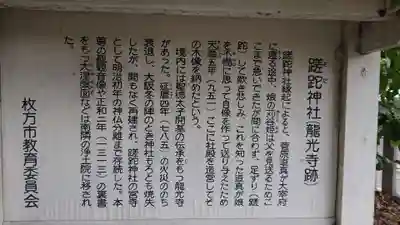 蹉跎神社(龍光寺跡)
蹉跎神社縁起によると、菅原道真が大宰府
に渡る途中、娘の苅谷姫は父を見送るためこ
こまで急いできたが間に合わず、足ずり(蹉
跎)して歎き悲しみ、これを知った道真が娘
を不憫に思って自像を作って送り与えたため
天暦五年(九五一)ここに社殿を造営してそ
の木像を納めたという。
境内には聖徳太子開基の伝承をもつ龍光寺
があった。延暦四年(七八五)の火災ののち
衰退し、大阪冬の陣のとき神社もろとも焼失
したが、間もなく再建され、蹉跎神社の宮寺
として明治初年の神仏分離まで存続した。本
尊の観音像や正和二年(一三一三)の裏書
をもつ大涅槃図などは南隣の浄土院に移され
た。
枚方市教育委員会